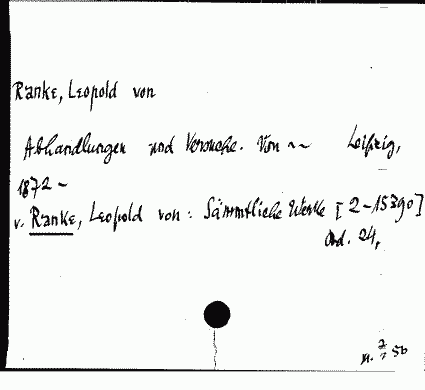 Ranke, Leopold von
Abhandlungen und Versuche. Von ~ Leipzig,
1872 -
v. Ranke, Leopold von: Sämmtliche Werke [2-15390]
Bd. 24,